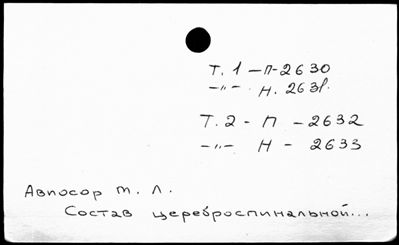 Т. 1 – П – 2630
–"– Н. 2631.
Т. 2 – П – 2632
–"– Н – 2633
Авпосор М. Л.
Состав цереброспинальной...